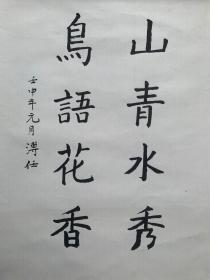 山青水秀
鳥語花香
壬申年元月溥任